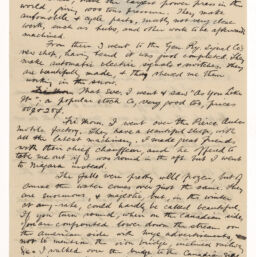 works, have the largest power press in the
world, pin, 1000 tons They make
automobile & cycle parts, mostly not very close
work, such as hubs, and other work to be afterward
machined.
From there I went to the Gen Ry Signal Co's
very shop, have, and is just completed They
make automatic electric signals & switches, they
are beautifully made, & they showed me them
work, in the snow.
That Eve, I went & saw "As You Like
It", a popular stock Co, very good too, prices
Fri Morn, I went over the Pierce Auto-
mobile factory. They have a beautiful shop, with
all the latest machinery, I made great friends
with their chief chauffeur, and he offered to
take me out if I was round in the aft. but I went
to Niagara instead.
The falls were pretty well frozen, but of
course the water comes over just the same. They
are immense, & majestic but, in the winter
at any rate, could hardly be called beautiful.
If you turn round, when on the Canadian side,
you are confronted lower down the stream on
the american side with huge advertisements,
not to mention the iron bridge, inclined railway
&c. I walked over the bridge to the Canadian side